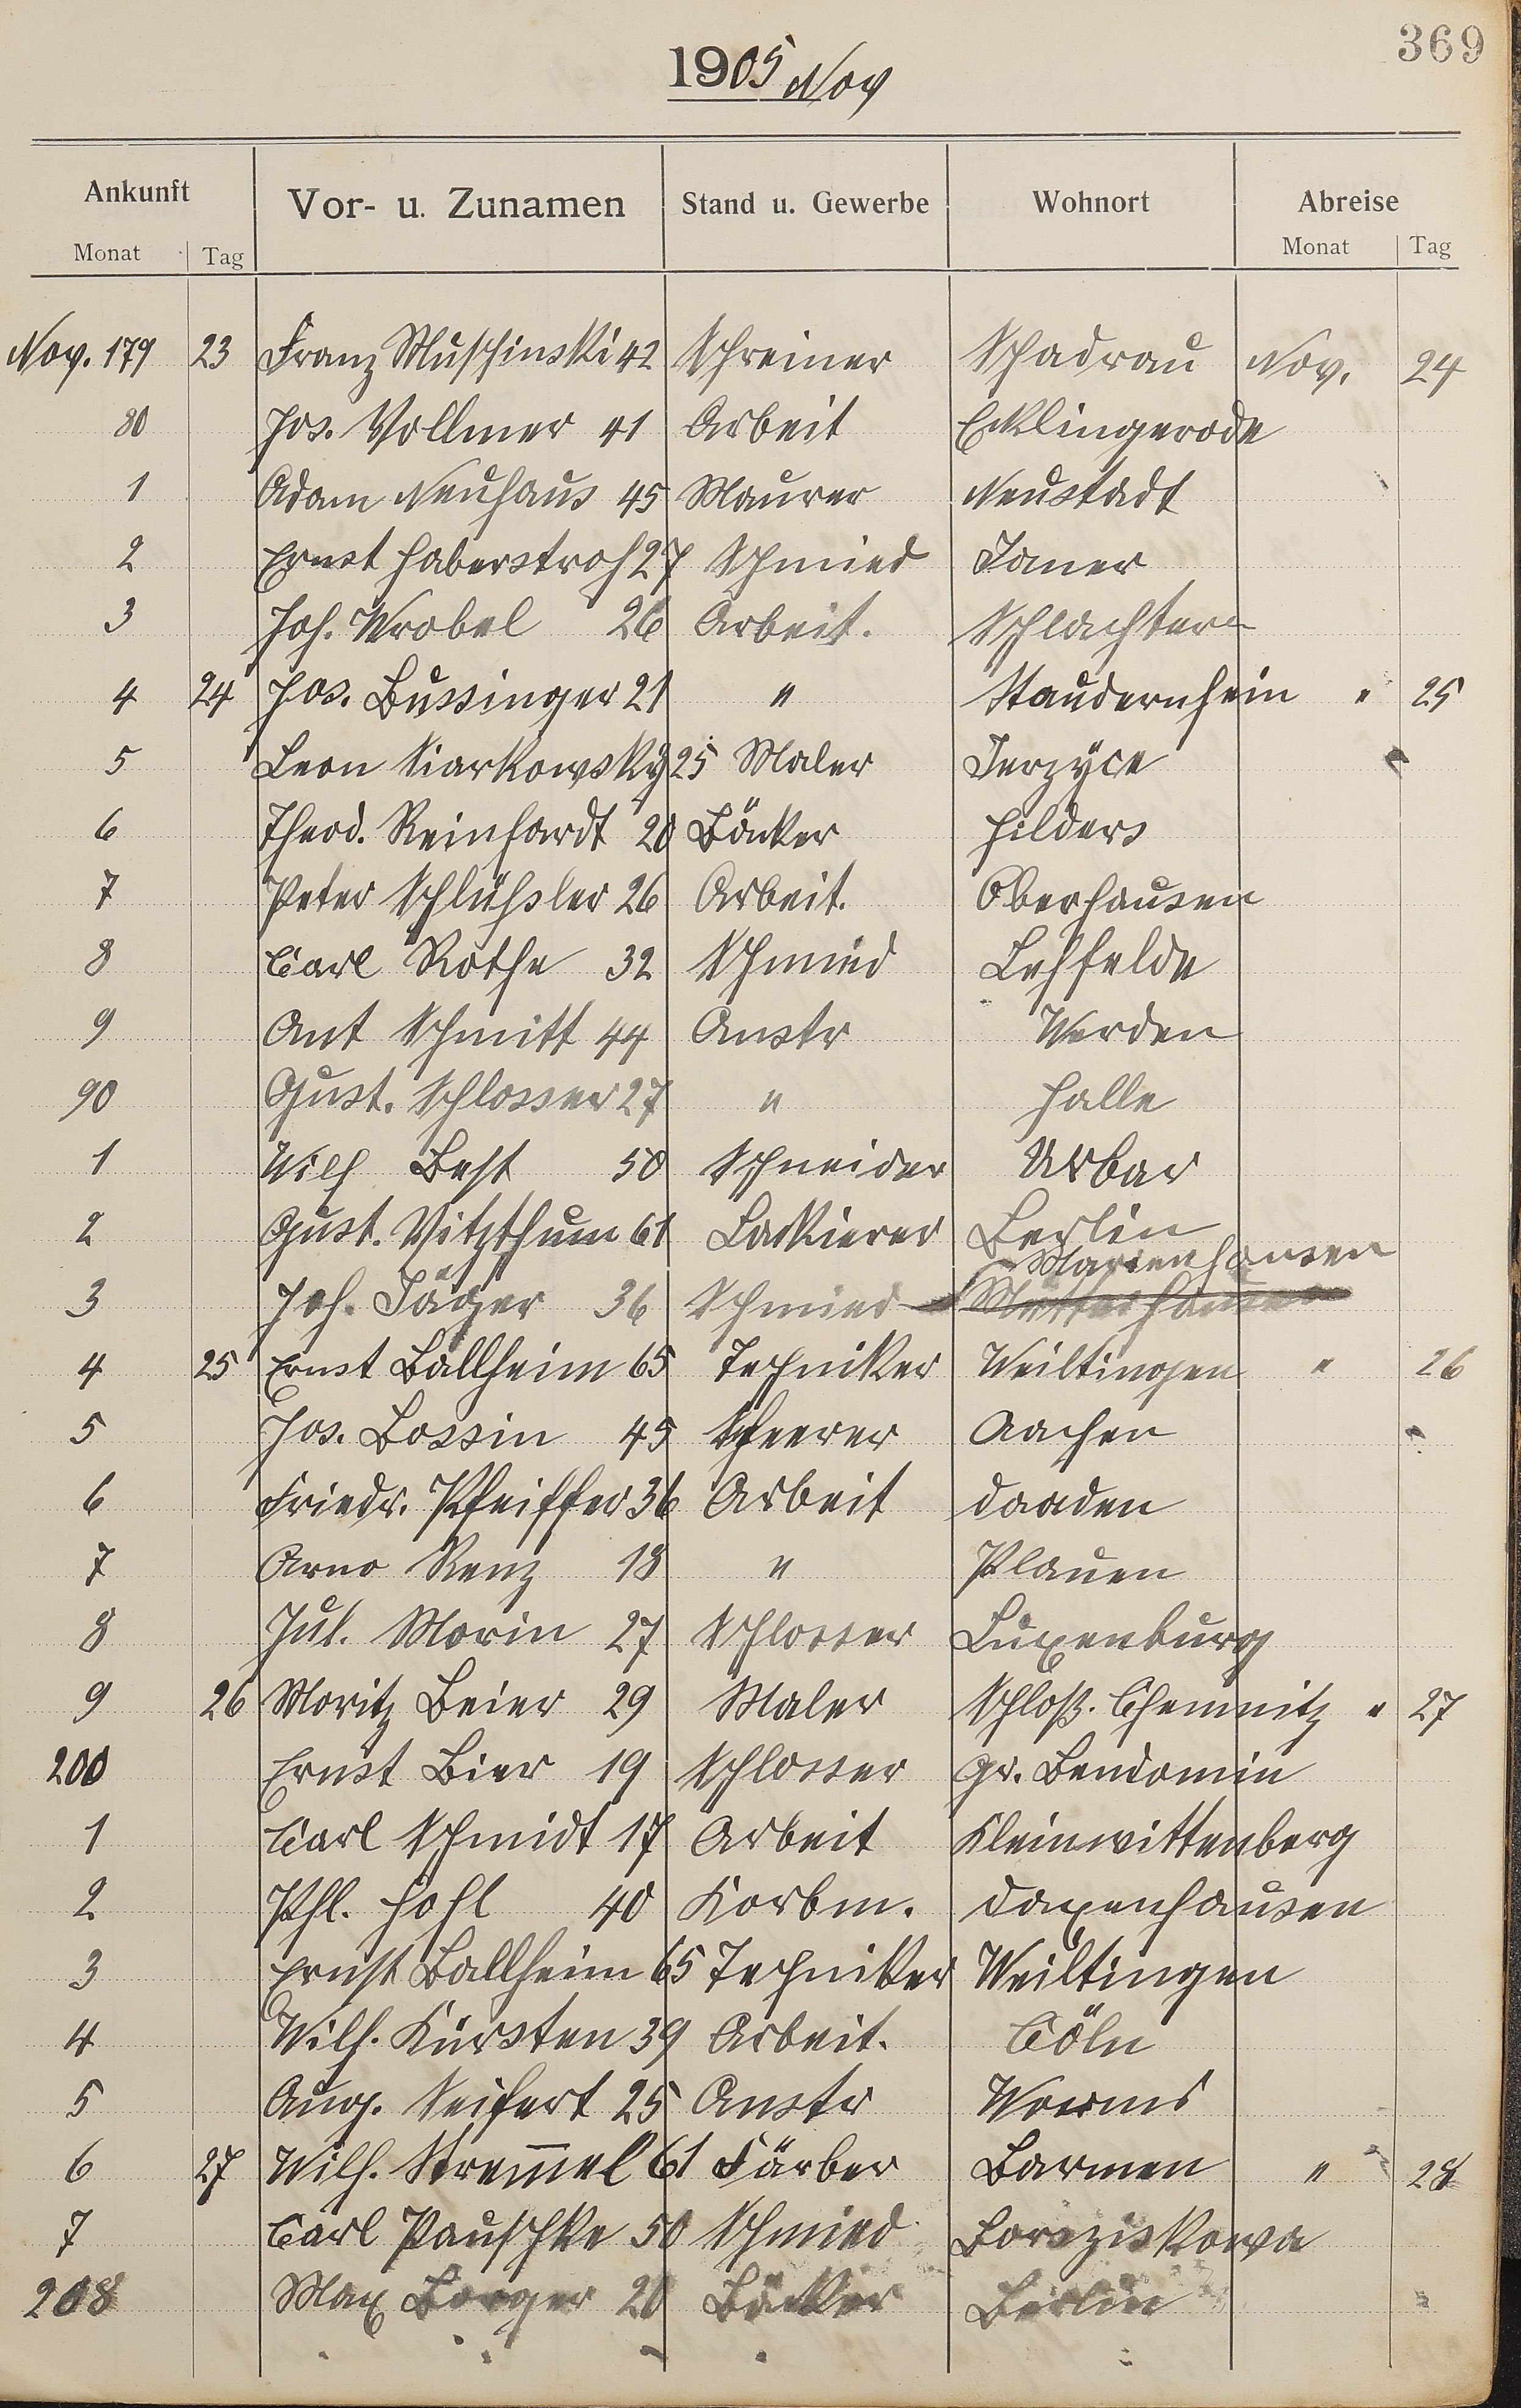 369
1905 Nov
Ankunft Vor- u. Zunamen Stand u. Gewerbe Wohnort Abreise
Monat Tag Monat Tag
Nov. 179 23 Franz Muschinski 42 Schreiner Schadrau Nov. 24
80 Jos. Vollmer 41 Arbeit Ecklingerode
1 Adam Neuhaus 45 Maurer Neustadt
2 Ernst Haberstroh 27 Schmied Jauer
3 Joh. Wrobel 26 Arbeit.
4 24 Jos. Bussinger 21 " Staudernheim " 25
5 Leon Siarkowsky 25 Maler Jerzyce
6 Theod. Reinhardt 20 Bäcker Hilders
7 Peter Schlüssler 26 Arbeit. Oberhausen
8 Carl Rothe 32 Schmied Lehfelde
9 Ant Schmitt 44 Anstr Werden
90 Gust. Schlosser 27 " Halle
1 Wilh Best 50 Schneider Urbar
2 Gust. Vitzthum 61 Lackierer Berlin
Marienhausen
3 Joh. Jäger 36 Schmied
4 25 Ernst Ballheim 65 Techniker Weiltingen " 26
5 Jos. Lossin 45 Scheerer Aachen
6 Friedr. Pfeiffer 36 Arbeit Daaden
7 Arno Renz 18 " Plauen
8 Jul. Morin 27 Schlosser Luxenburg
9 26 Moritz Beier 29 Maler Schloß. Chemnitz " 27
200 Ernst Bier 19 Schlosser Gr. Bendomin
1 Carl Schmidt 17 Arbeit Kleinwittenberg
2 Phl. Hohl 40 Korbm. Daxenhausen
3 Ernst Ballheim 65 Techniker Weiltingen
4 Wilh. Kürsten 39 Arbeit. Cöln
5 Aug. Seifert 25 Anstr Worms
6 27 Wilh. Strem̅el 61 Färber Barmen " 28
7 Carl Pauschke 50 Schmied Boraziskowa
208 Max Borger 20 Bäcker Berlin